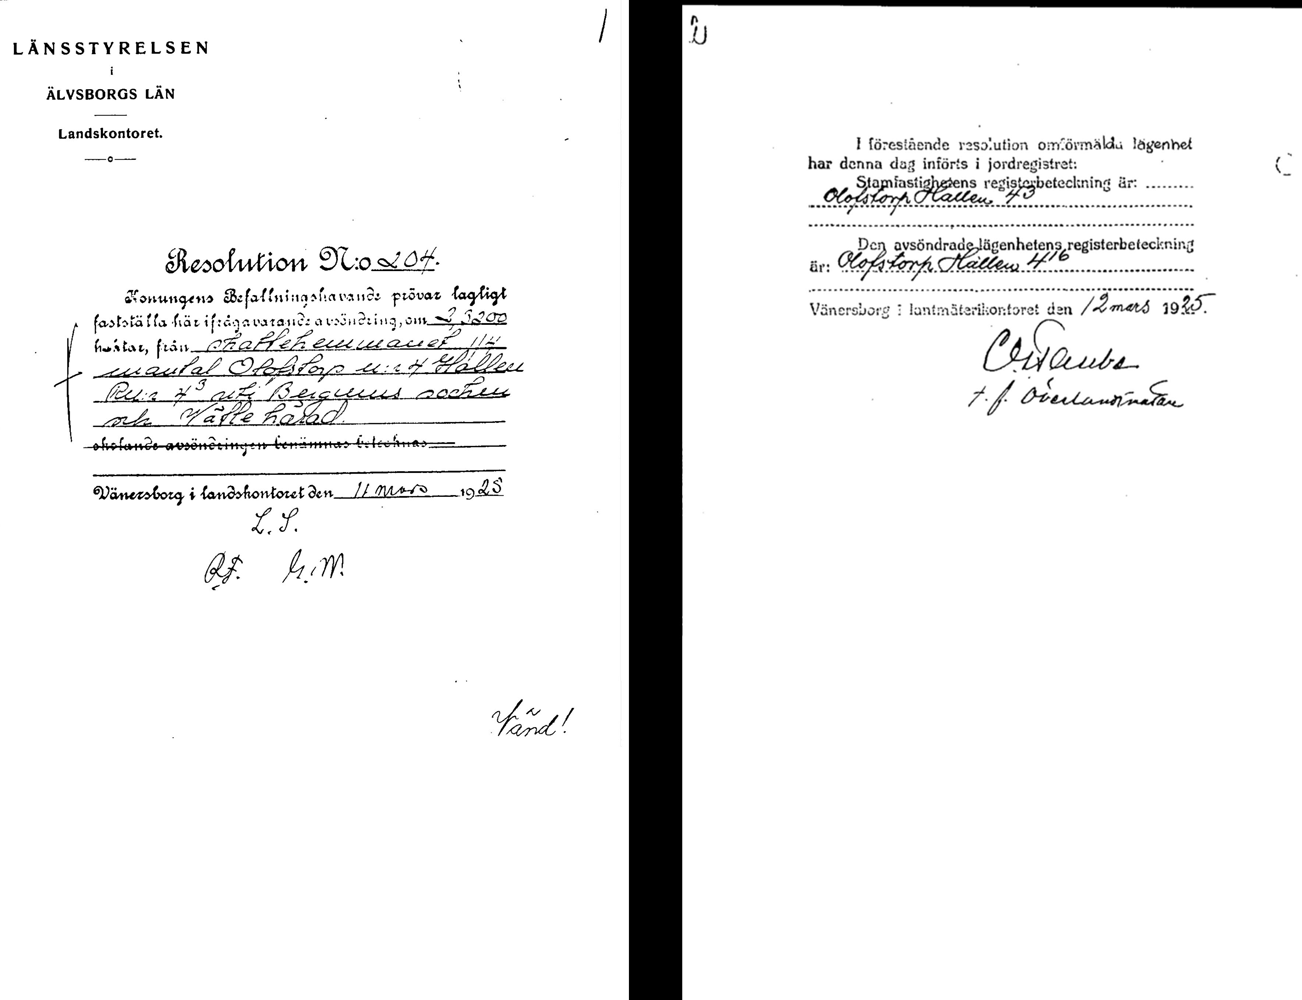 LÄNSSTYRELSEN
i
ÄLVSBORGS LÄN
Landskontoret.
Resolution N:o 204.
Konungens Befallningshavande prövar lagligt
fastställa här ifrågavarande avsöndring, om 2,3200
hektar, från skattehemmanet 1/4
mantal Olofstorp n:r 4 Hällen
R n:r 4³ uti Bergums socken
och Vättle härad.
skolande avsöndringen benämnas betecknas
Vänersborg i landskontoret den 11 mars 1925
L. S.
R.F. G.W.
Vänd!
I förestående resolution omförmälda lägenhet
har denna dag införts i jordregistret:
Stamfastighetens registerbeteckning är: .........
Olofstorp Hällen 4³
Den avsöndrade lägenhetens registerbeteckning
är: Olofstorp Hällen 4¹⁶
Vänersborg i lantmäterikontoret den 12 mars 1925.
t. f. Överlantmätare